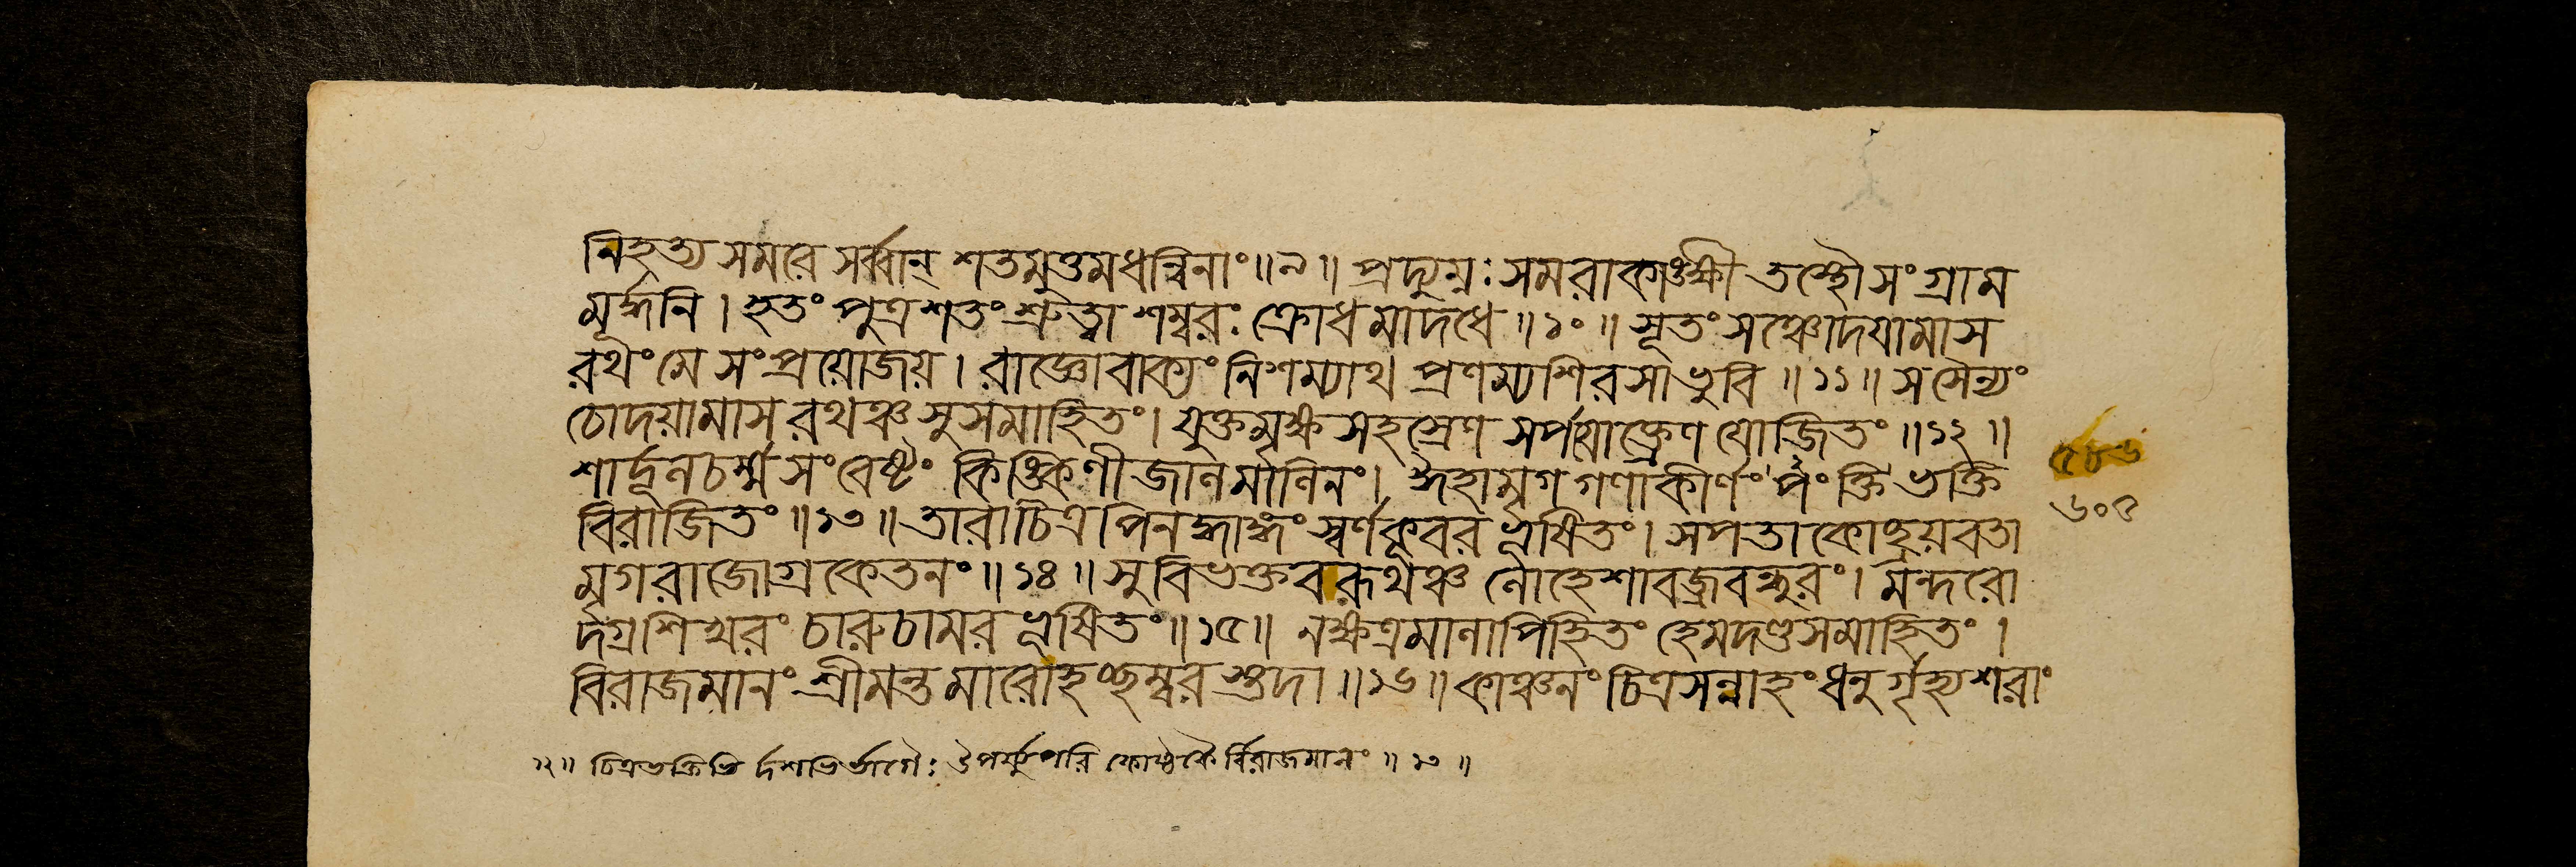 নিহত্য সমরে সর্ব্বান্ শতমুত্তমধন্বিনাং॥৯॥ প্রদ্যুম্নঃ সমরাকাঙ্ক্ষী তস্থৌ সংগ্রাম
মূর্দ্ধনি। হতং পুত্রশতং শ্রুত্বা শম্বরঃ ক্রোধমাদধে॥১০॥ সূতং সঞ্চোদয়ামাস
রথং মে সংপ্রয়োজয়। রাজ্ঞোবাক্যং নিশম্যাথ প্রণম্যশিরসা ভুবি॥১১॥ সসৈন্যং
চোদয়ামাস রথঞ্চ সুসমাহিতং। যুক্তমৃক্ষসহস্রেণ সর্পযোক্ত্রেণ যোজিতং॥১২॥
শার্দ্দূলচর্ম্মসংবেষ্টং কিঙ্কিণীজালমালিনং। ঈহামৃগগণাকীর্ণং পংক্তিভক্তি
বিরাজিতং॥১৩॥ তারাচিত্রপিনদ্ধাঙ্গং স্বর্ণকূবরভূষিতং। সপতাকোচ্ছ্রয়বতা
মৃগরাজোগ্রকেতনং॥১৪॥ সুবিভক্তবরূথঞ্চ লোহেশাবজ্রবন্ধুরং। মন্দরো
দগ্রশিখরং চারুচামরভূষিতং॥১৫॥ নক্ষত্রমালাপিহিতং হেমদণ্ডসমাহিতং।
বিরাজমানং শ্রীমন্তমারোহচ্ছম্বরস্তদা॥১৬॥ কাঞ্চনং চিত্রসন্নাহং ধনুর্গৃহ্য শরাং
৫৮৬
৬০৩
১২॥ চিত্রভক্তিভি র্দশভির্ভাগৈঃ উপর্য্যুপরি কোষ্ঠকৈ র্বিরাজমানং॥১৩॥